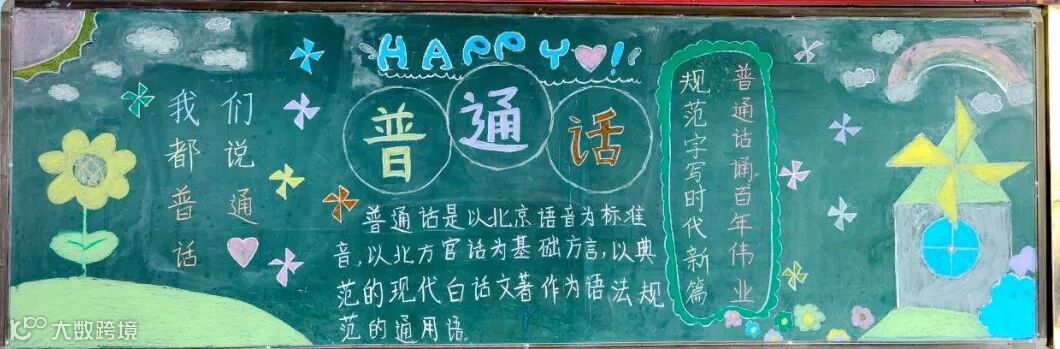 HAPPY!
普通话
我们
都说
普通
话
普通话是以北京语音为标准
音，以北方官话为基础方言，以典
范的现代白话文著作为语法规
范的通用语。
普通话诵百年伟业
规范字写时代新篇
大数跨境